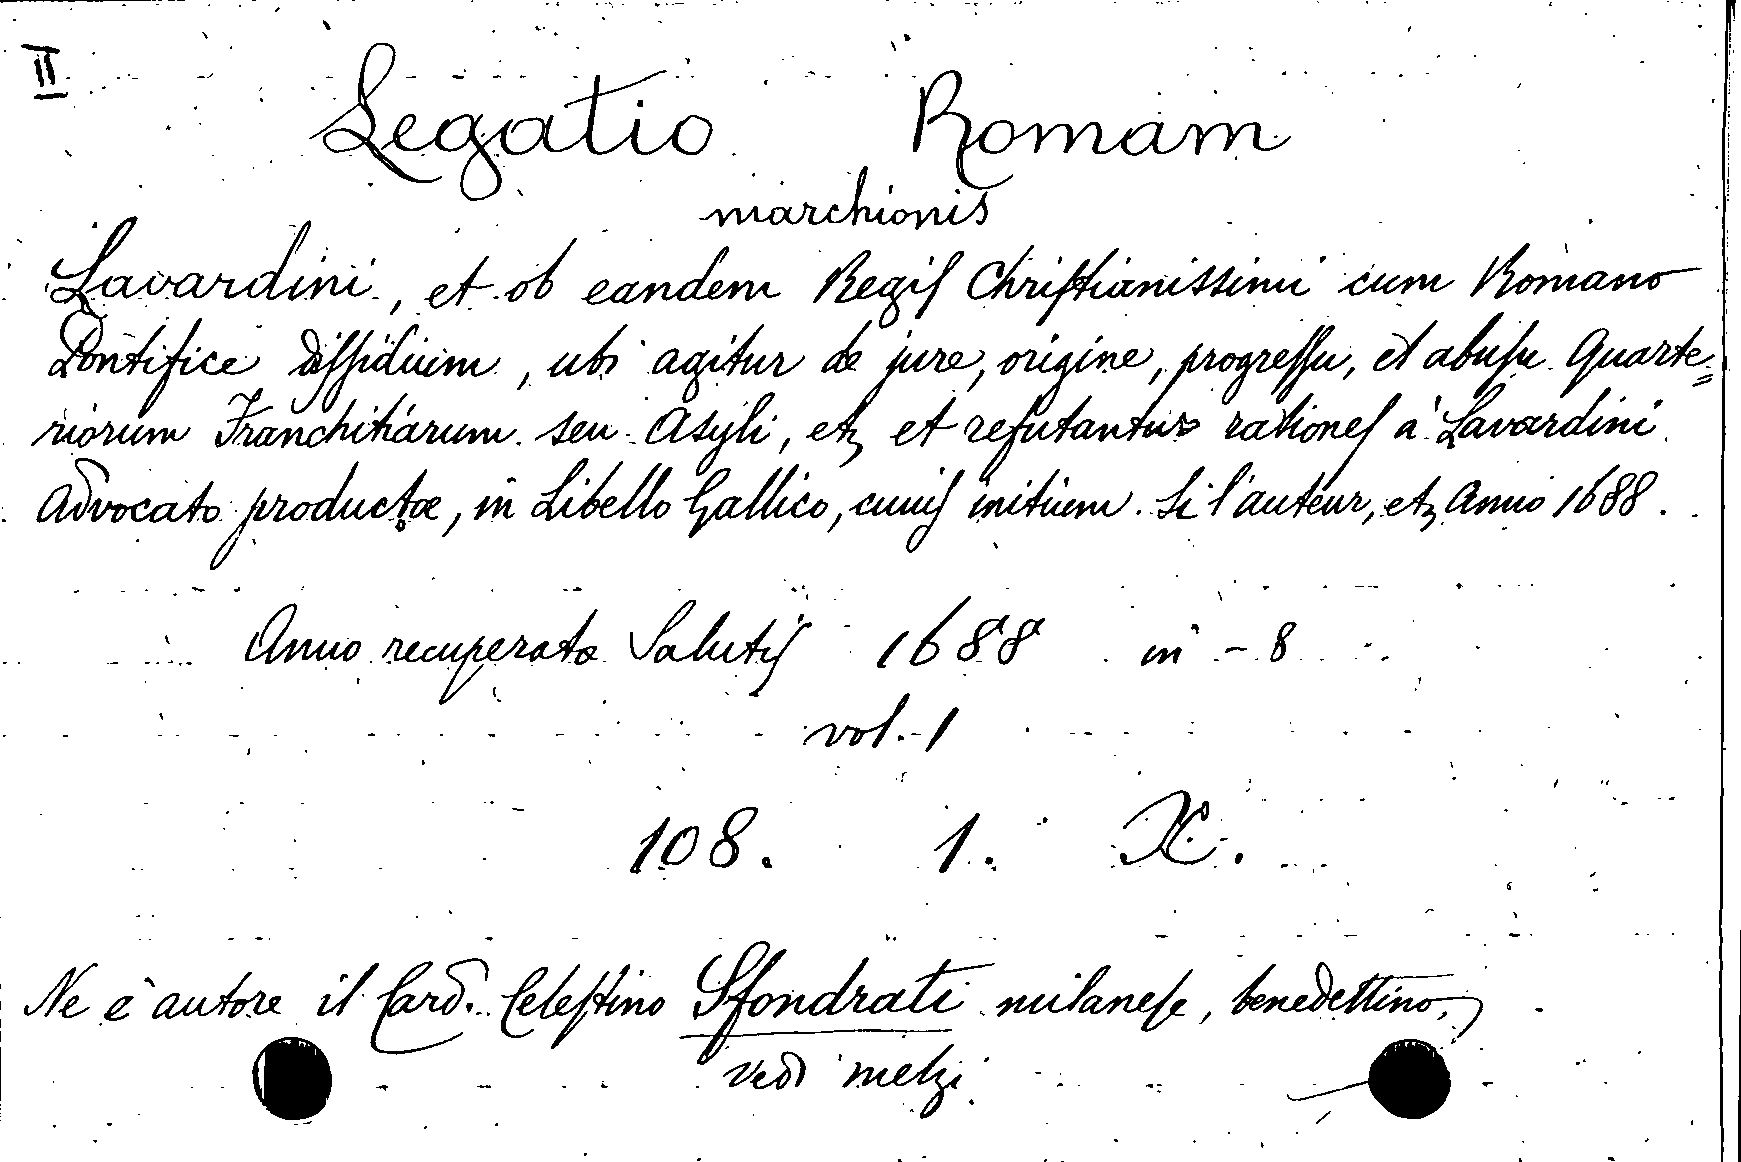 II
Legatio Romam
marchionis
Lavardini, et ob eandem Regiſ Chriſtianissimi cum Romano
Pontifice diſſidium, ubi agitur de jure, origine, progreſſu, et abuſu Quarte=
riorum Franchitiarum seu Asyli, etz et refutantur rationeſ à Lavardini
Advocato productæ, in Libello Gallico, cuuiſ initium. Si l'auteur, etz Anno 1688.
Anno recuperatæ Salutiſ 1688 in - 8
vol. 1
108. 1. X.
Ne è autore il Card. Celeſtino Sfondrati milaneſe, benedettino,
Vedi melzi